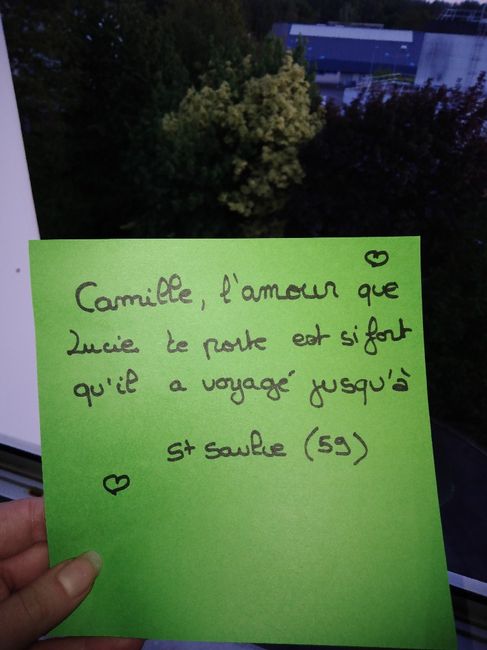 Camille, l'amour que
Lucie te porte est si fort
qu'il a voyagé jusqu'à
St Saulve (59)